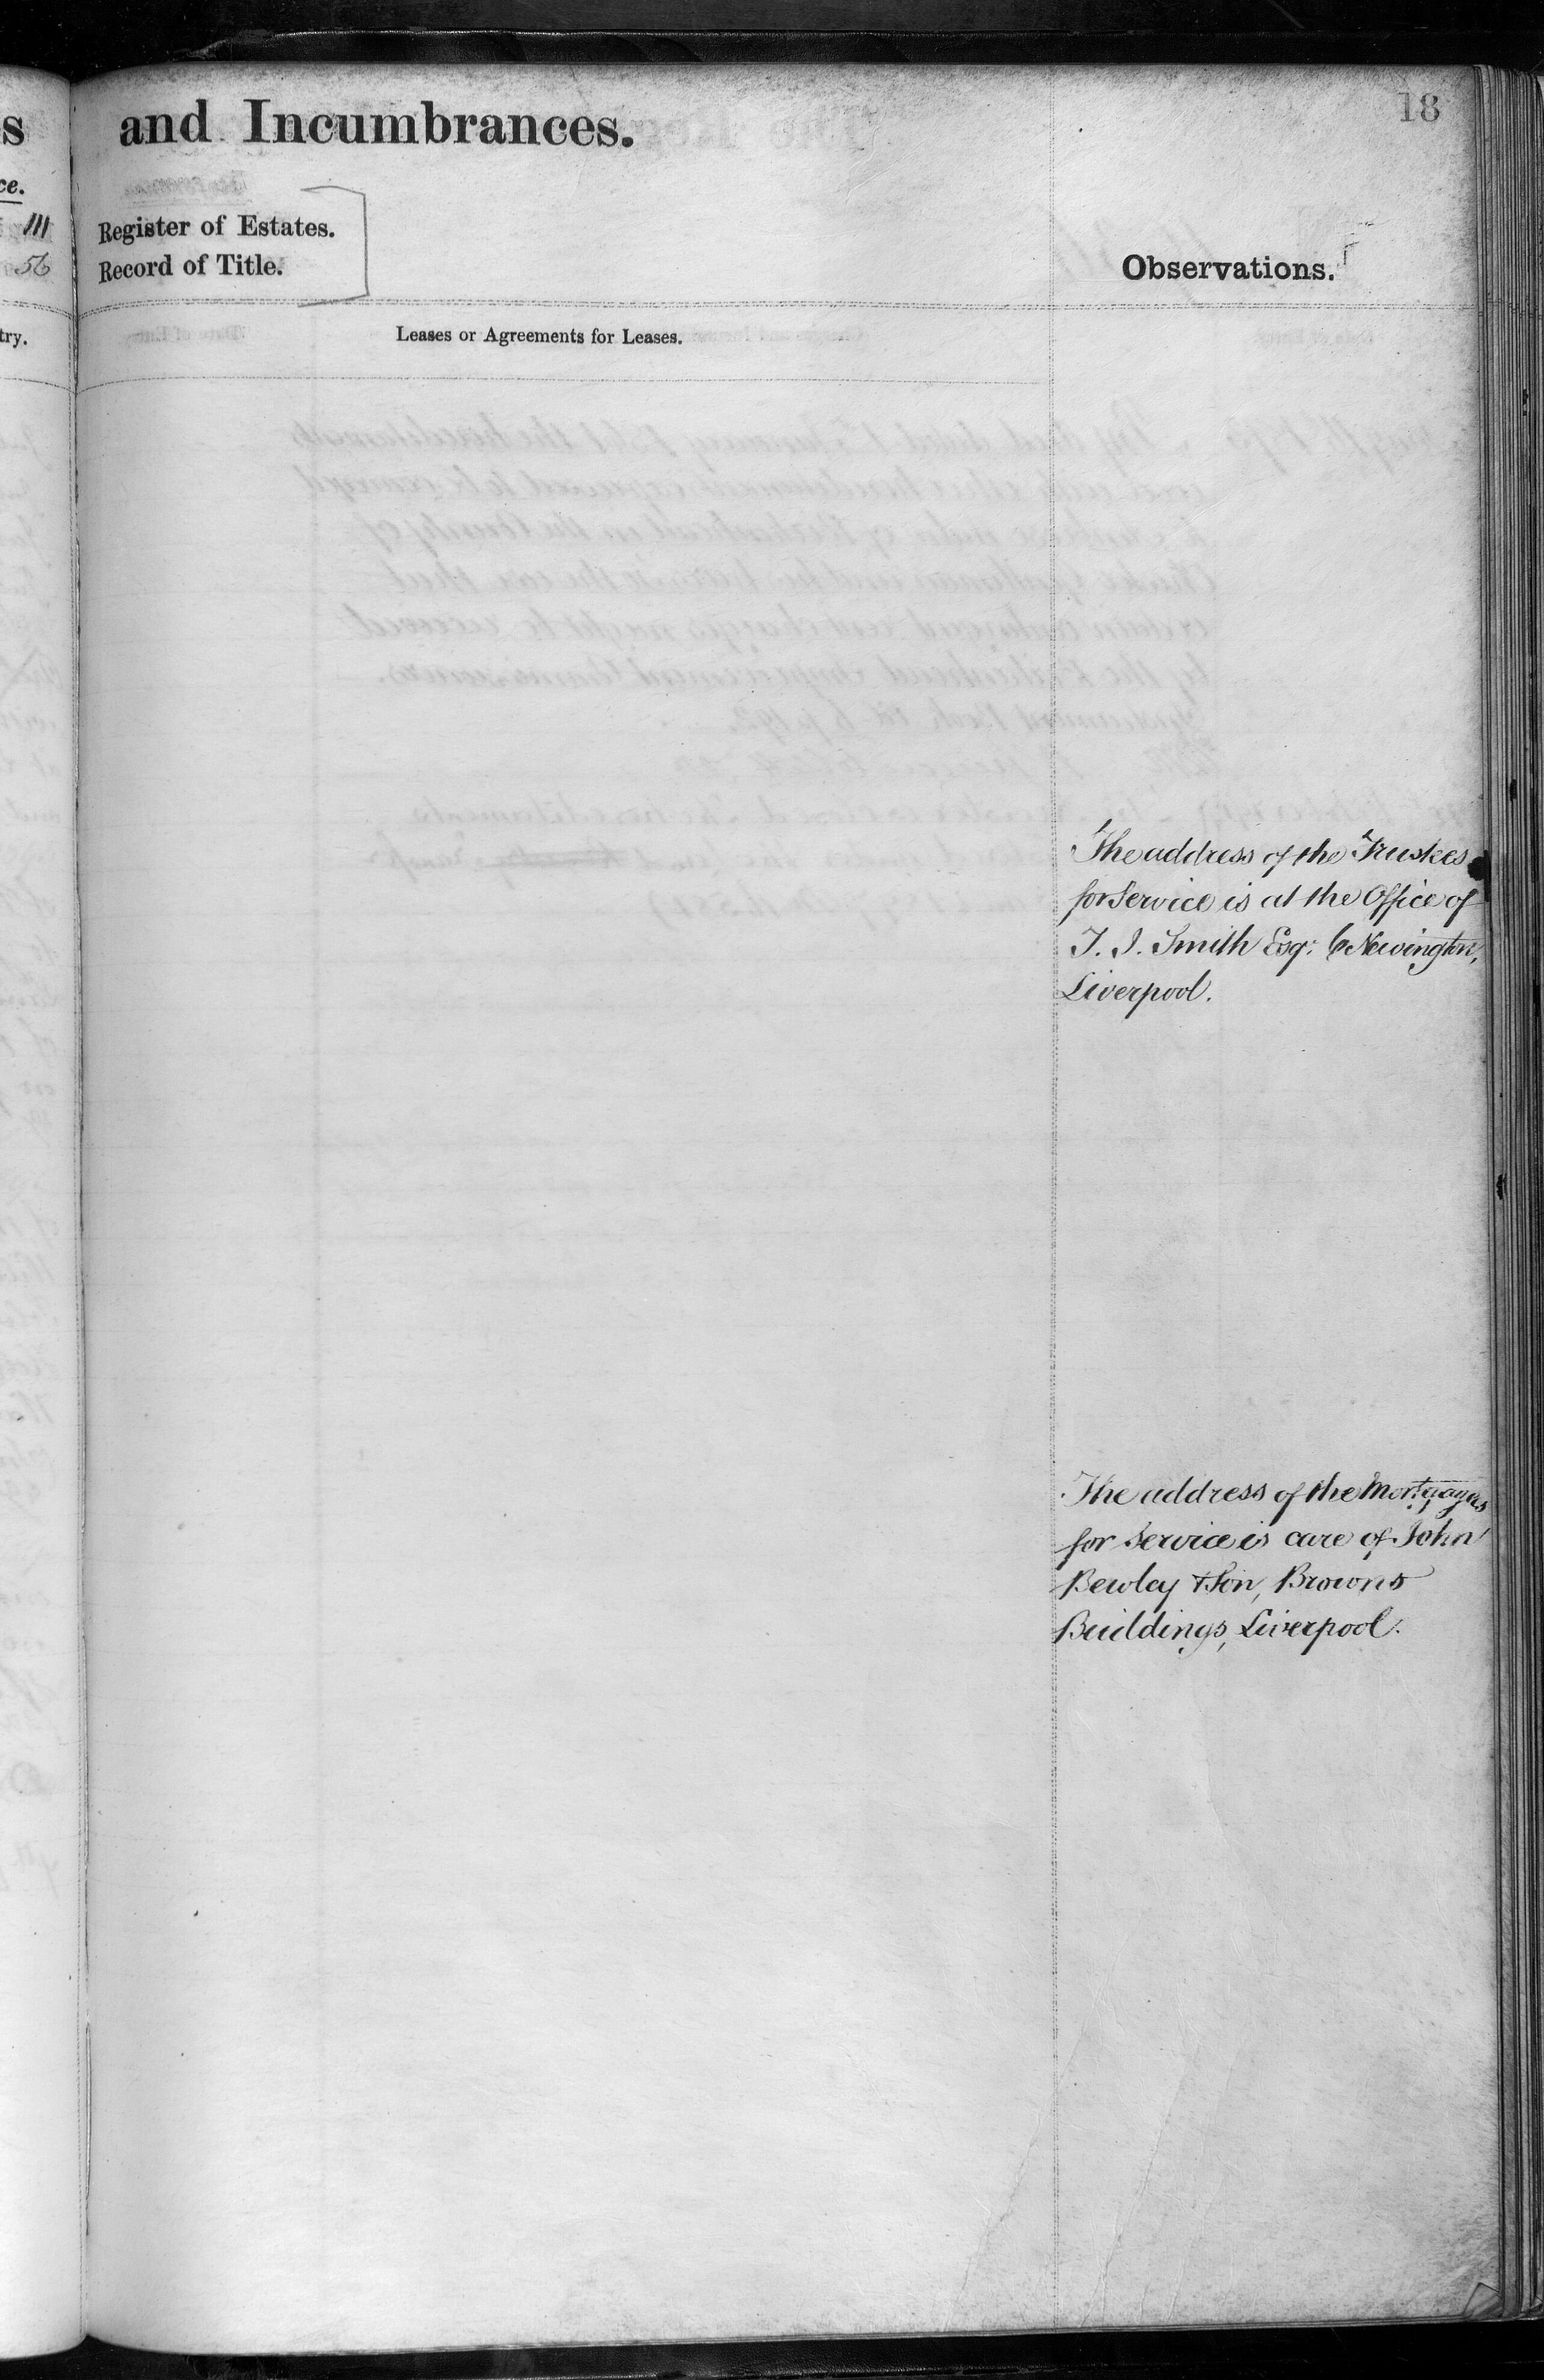 18
s and Incumbrances.
ce.
111 Register of Estates.
56 Record of Title.
Observations.
try. Leases or Agreements for Leases.
The address of the Trustees
for Service is at the Office of
T. J. Smith Esqr. 6 Newington,
Liverpool.
The address of the Mortgagees
for Service is care of John
Bewley & Son, Browns
Buildings, Liverpool.